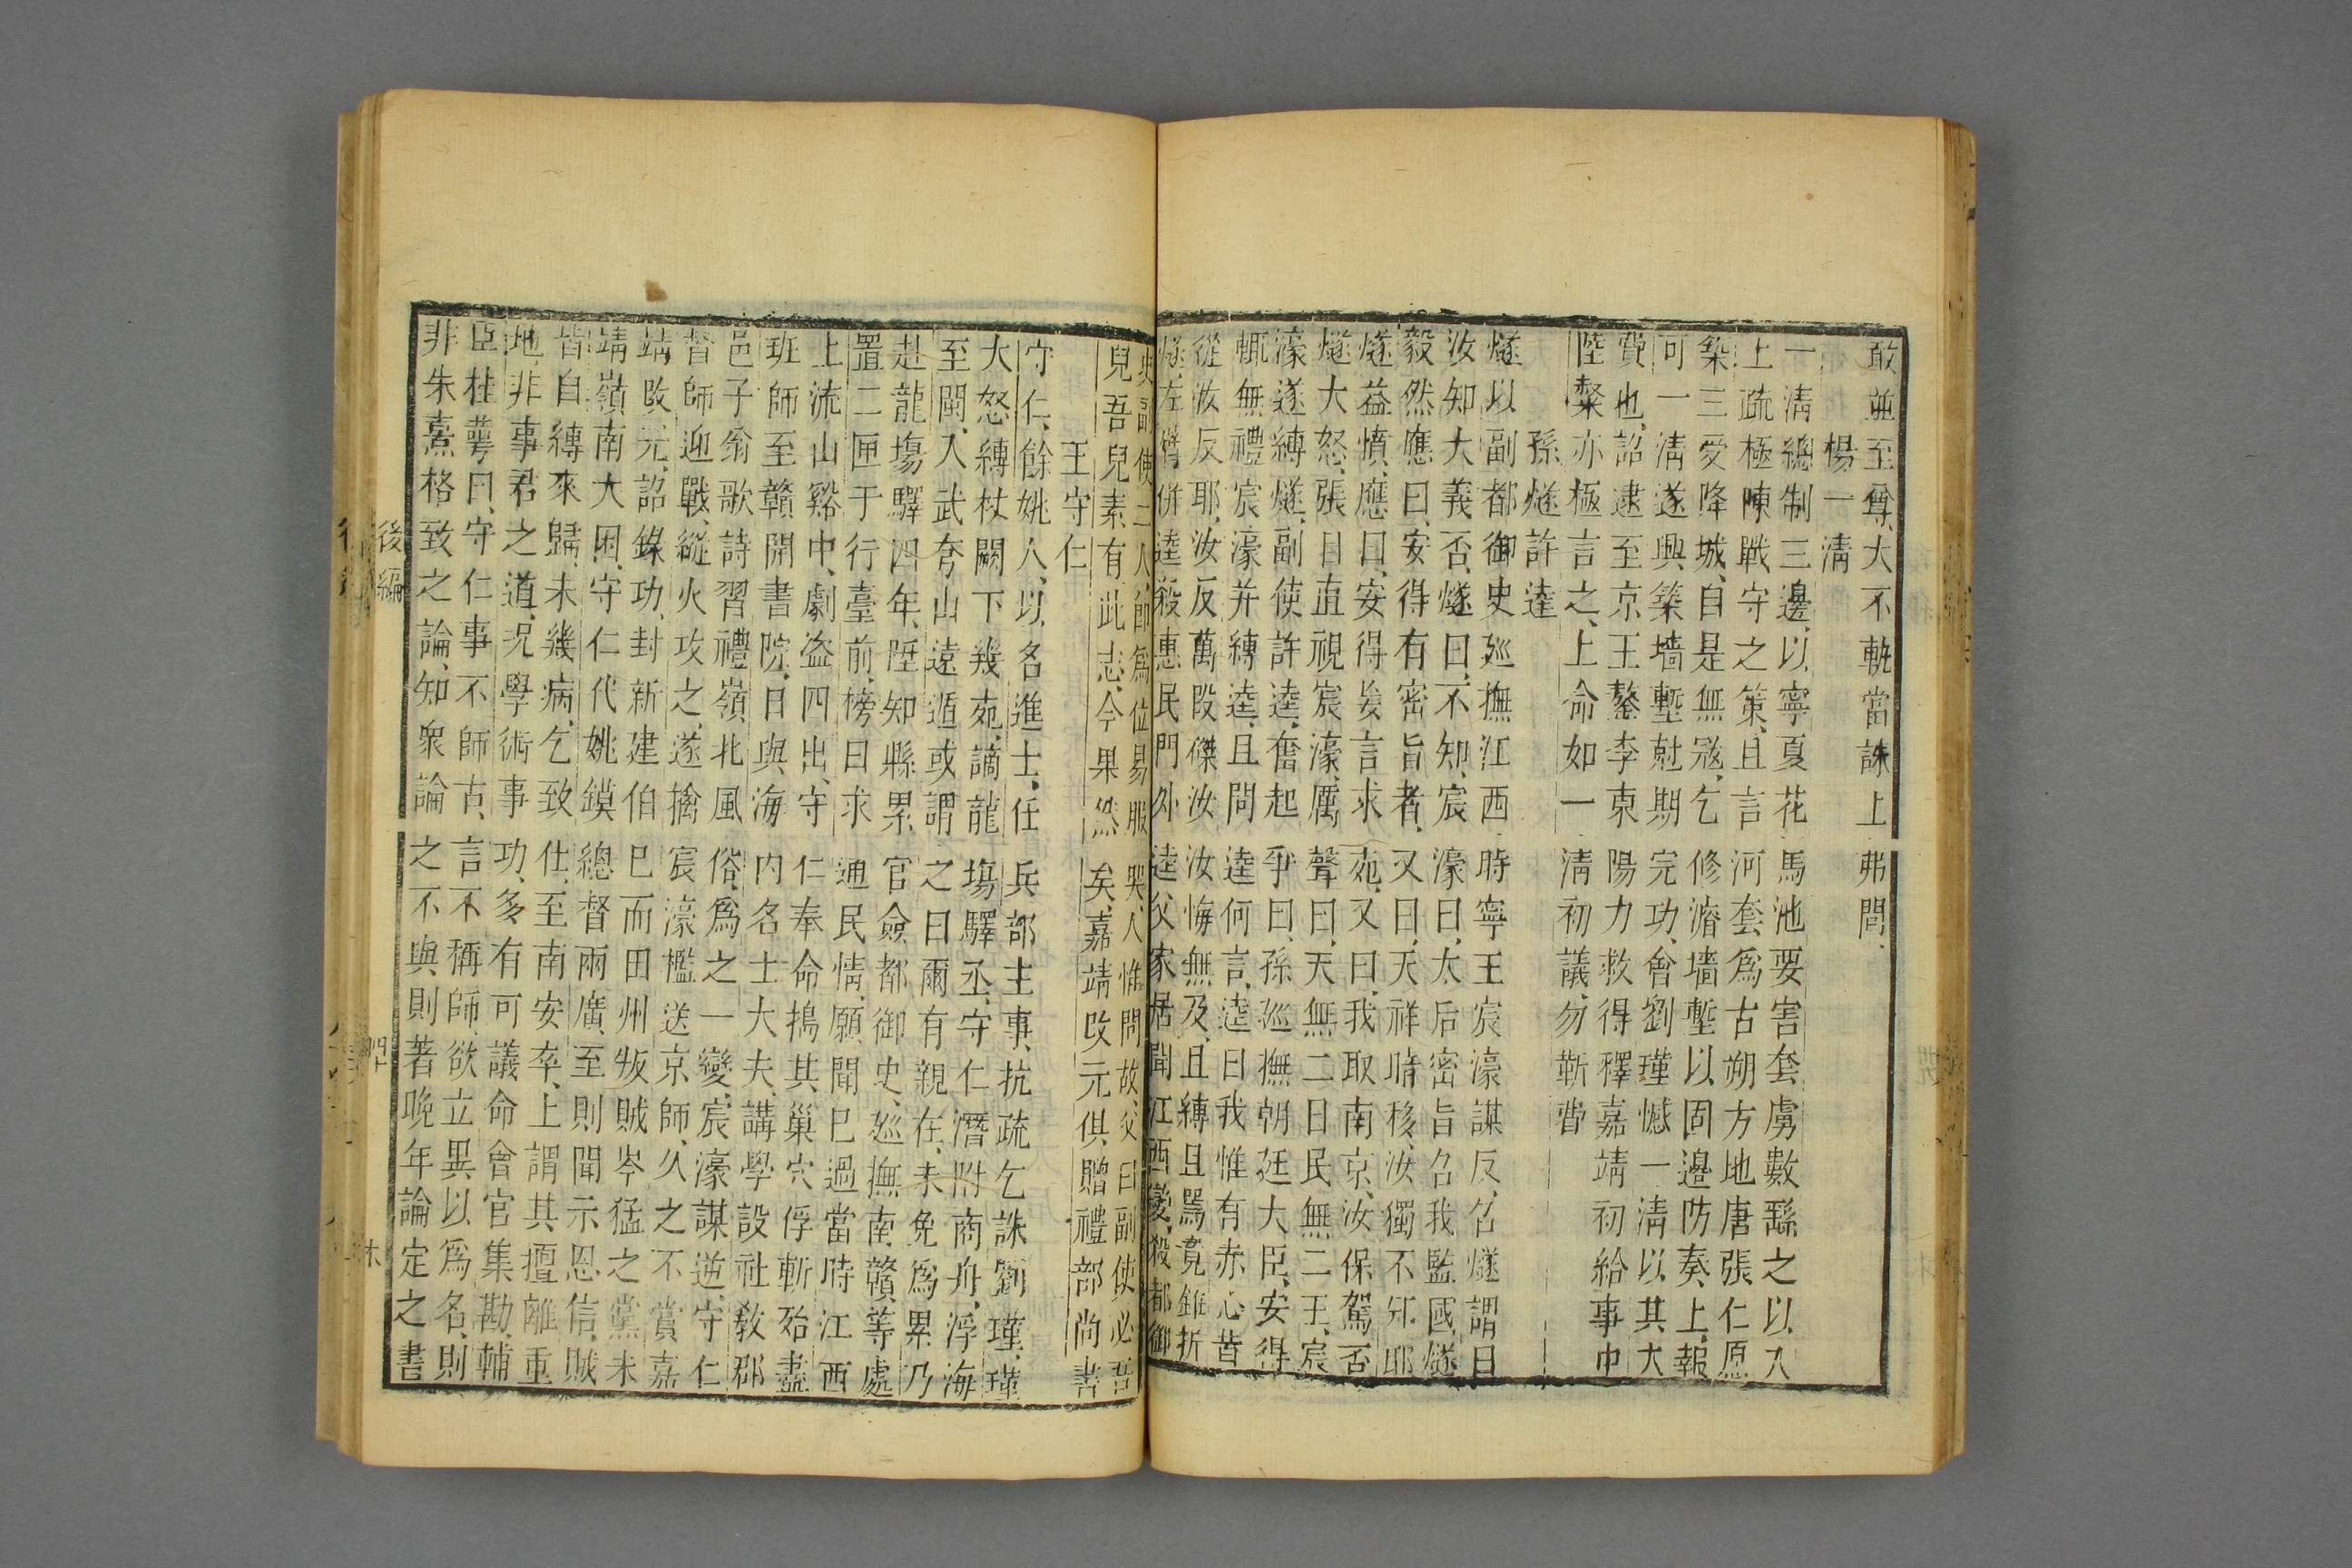 敢並至尊大不軌當誅上弗問
楊一淸
一淸總制三邊以寧夏花馬池要害套虜數繇之以入
上疏極陳戰守之策且言河套爲古朔方地唐張仁愿
築三受降城自是無冦乞修濬墻塹以固邊防奏上報
可一淸遂興築墻塹尅期完功會劉瑾憾一淸以其大
費也詔逮至京王鏊李東陽力救得釋嘉靖初給事中
陸粲亦極言之上命如一淸初議勿靳費
孫燧許逵
燧以副都御史廵撫江西時寧王宸濠謀反召燧謂曰
汝知大義否燧曰不知宸濠曰太后密旨召我監國燧
毅然應曰安得有密旨者又曰天祥暗移汝獨不知耶
燧益憤應曰安得妄言求死又曰我取南京汝保駕否
燧大怒張目直視宸濠厲聲曰天無二日民無二王宸
濠遂縛燧副使許逵奮起爭曰孫廵撫朝廷大臣安得
輒無禮宸濠并縛逵且問逵何言逵曰我惟有赤心豈
從汝反耶汝反萬段磔汝汝悔無及且縛且罵竟錐折
燧左臂併逵殺惠民門外逵父家居聞江西變殺都御
與副使二人卽爲位易服哭人惟問故父曰副使必吾
兒吾兒素有此志今果然矣嘉靖改元俱贈禮部尙書
王守仁
守仁餘姚人以名進士任兵部主事抗疏乞誅劉瑾瑾
大怒縛杖闕下幾死謫龍塲驛丞守仁潛附商舟浮海
至閩入武夸山遠遁或謂之曰爾有親在未免爲累乃
赴龍塲驛四年陞知縣累官僉都御史廵撫南贛等處
置二匣于行臺前榜曰求通民情願聞已過當時江西
上流山谿中劇盜四出守仁奉命搗其巢穴俘斬殆盡
班師至贛開書院日與海內名士大夫講學設社敎郡
邑子翁歌詩習禮嶺北風俗爲之一變宸濠謀逆守仁
督師迎戰縱火攻之遂擒宸濠檻送京師久之不賞嘉
靖改元詔錄功封新建伯已而田州叛賊岑猛之黨未
靖嶺南大困守仁代姚鏌總督兩廣至則聞示恩信賊
皆自縛來歸未幾病乞致仕至南安卒上謂其擅離重
地非事君之道况學術事功多有可議命會官集勘輔
臣桂萼曰守仁事不師古言不稱師欲立異以爲名則
非朱熹格致之論知衆論之不與則著晚年論定之書
後編